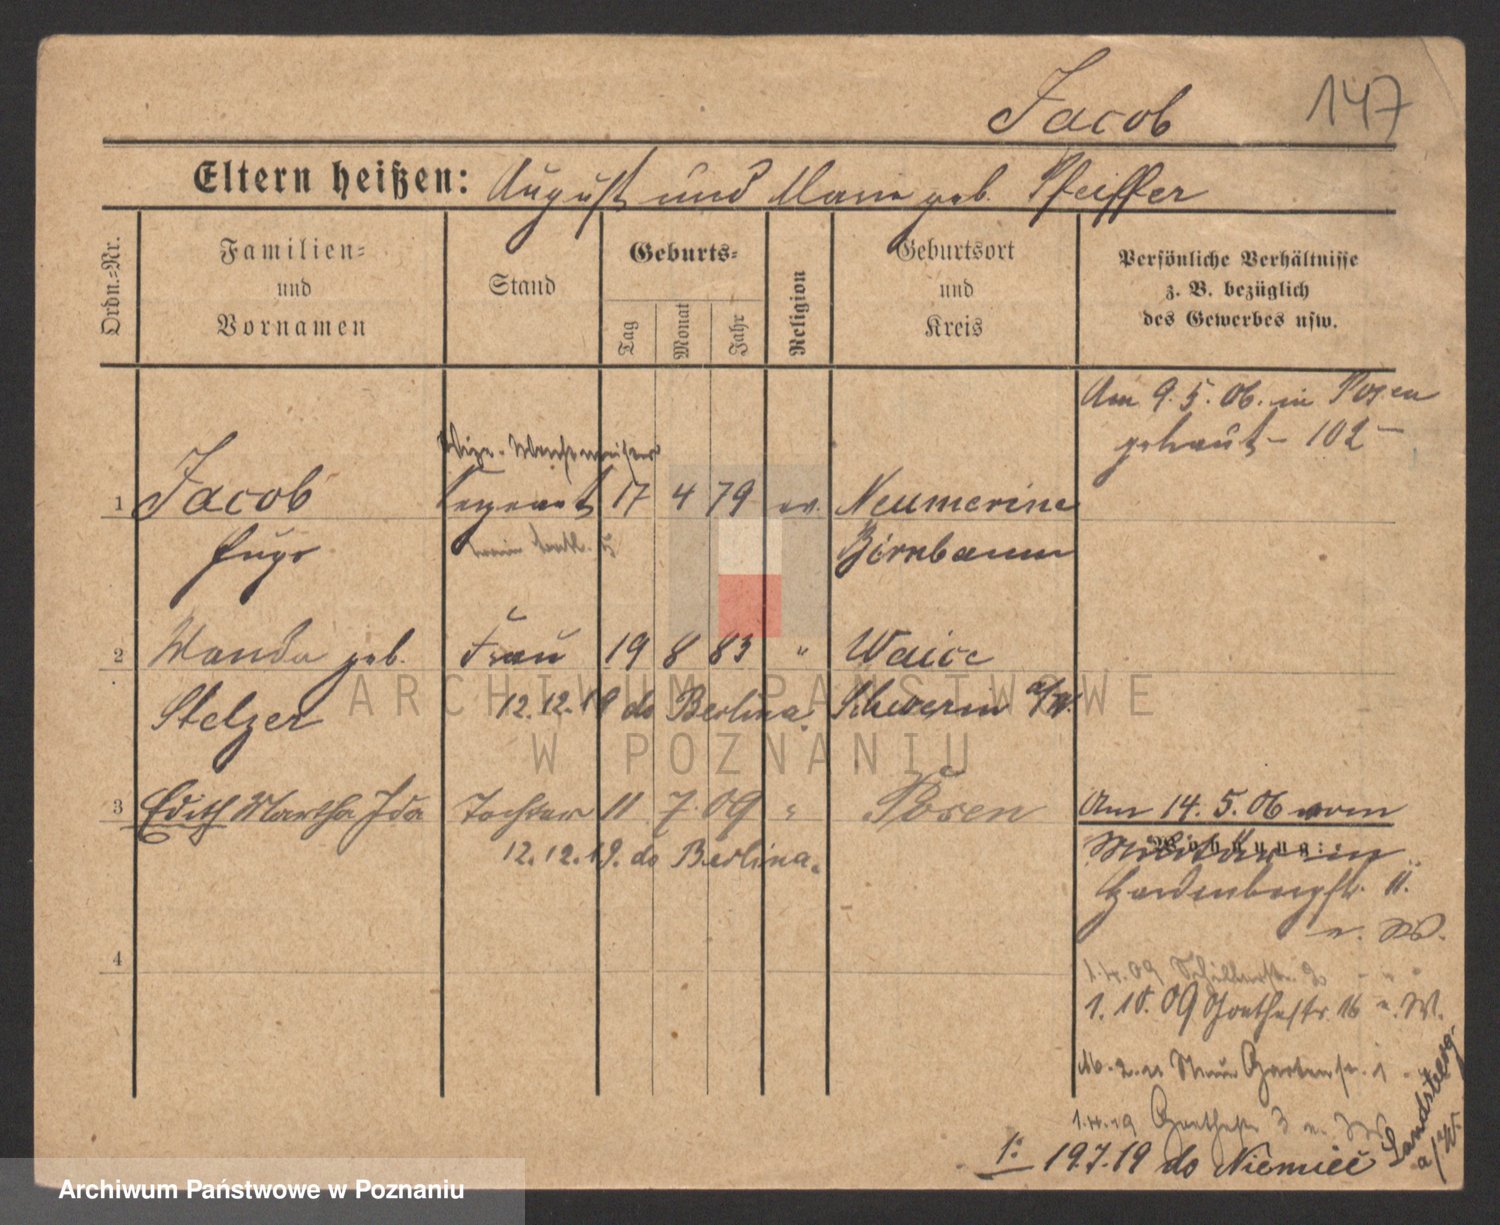 Jacob
147
Eltern heißen: August und Marie geb. Pfeiffer
Ordn.=Nr.
Familien=
und
Vornamen
Stand
Geburts=
Tag
Monat
Jahr
Religion
Geburtsort
und
Kreis
Persönliche Verhältnisse
z. B. bezüglich
des Gewerbes usw.
Am 9.5.06. in Posen
getraut - 102 -
Vize-Wachtmeister
1 Jacob Sergeant 17 4 79 ev. Neumerine
Hugo Birnbaum
2 Wanda geb. Frau 19 8 83 " Waice
Stelzer 12.12.19 do Berlina. Schwerin a/W.
3 Edith Martha Ida Tochter 11 7. 09 " Posen
12.12.19. do Berlina.
Am 14.5.06 vom
Wohnung:
Militär in
Hardenbergstr. 11.
n. W.
4
1.4.09 Schillerstr.
1.10.09 Goethestr. 16 n. W.
Neue Gartenstr. 1
1.4.19 Goethestr. 3 n. W
1: 19.7.19 do Niemiec Landsberg
a/W.
ARCHIWUM PAŃSTWOWE
W POZNANIU
Archiwum Państwowe w Poznaniu